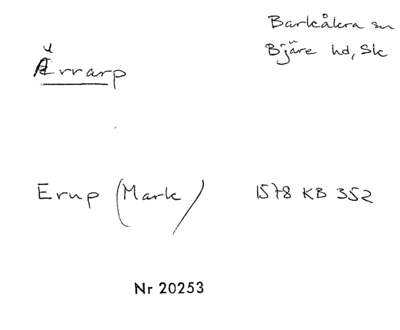 Barkåkra sn
Bjäre hd, Sk
Ärrarp
Erup (Mark) 1578 KB 352
Nr 20253